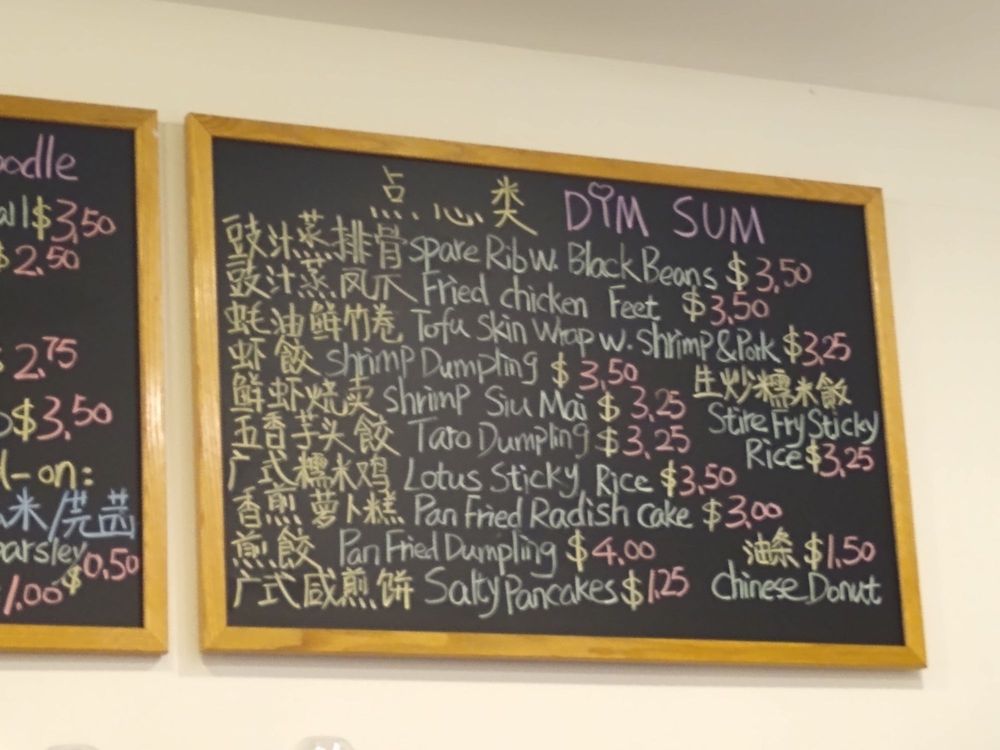 oodle
all $3.50
$2.50
$2.75
$3.50
-on:
米/芫茜
parsley $0.50
1.00
点心类 DIM SUM
豉汁蒸排骨 spare Rib w. Black Beans $3.50
豉汁蒸凤爪 Fried chicken Feet $3.50
蚝油鲜竹卷 Tofu Skin Wrap w. Shrimp & Pork $3.25
虾餃 Shrimp Dumpling $3.50
鲜虾烧卖 Shrimp Siu Mai $3.25
生炒糯米飯
Stire Fry Sticky
Rice $3.25
五香芋头餃 Taro Dumpling $3.25
广式糯米鸡 Lotus Sticky Rice $3.50
香煎萝卜糕 Pan Fried Radish Cake $3.00
煎餃 Pan Fried Dumpling $4.00
油条 $1.50
Chinese Donut
广式咸煎饼 Salty Pancakes $1.25